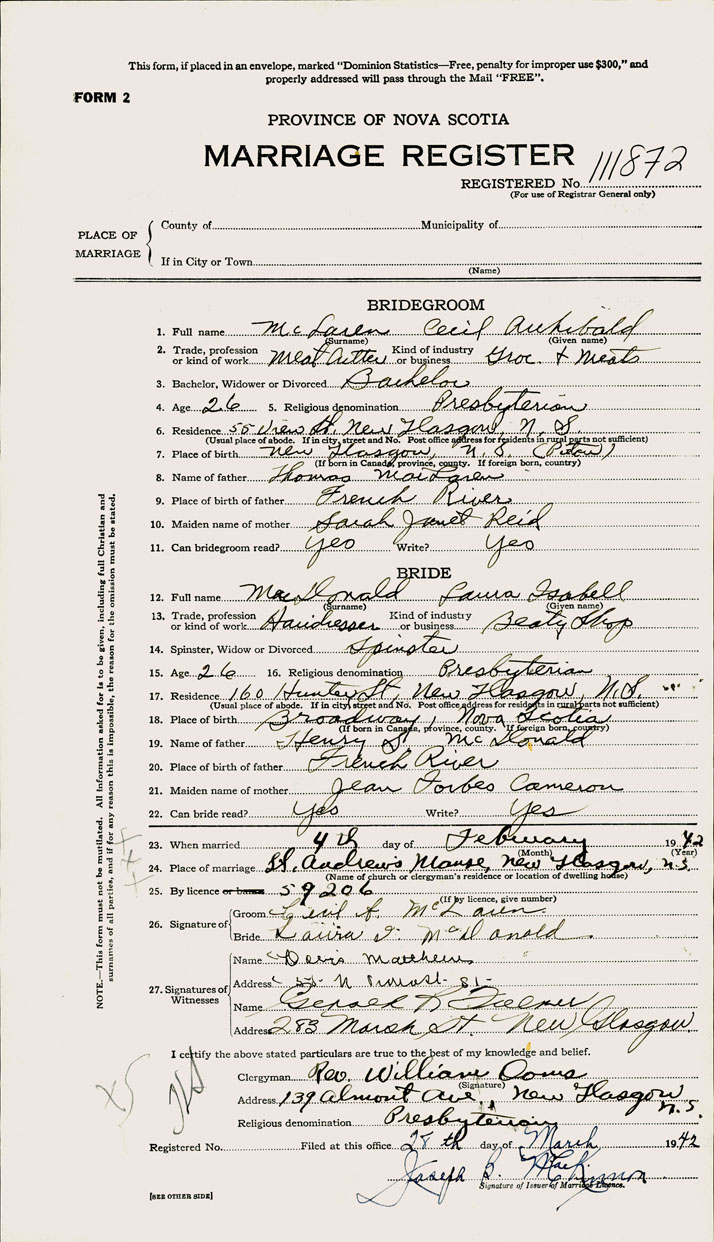 This form, if placed in an envelope, marked "Dominion Statistics—Free, penalty for improper use $300," and
properly addressed will pass through the Mail "FREE".
FORM 2
PROVINCE OF NOVA SCOTIA
MARRIAGE REGISTER
REGISTERED No. 111872
(For use of Registrar General only)
PLACE OF MARRIAGE
County of Municipality of
If in City or Town
(Name)
BRIDEGROOM
1. Full name McLaren Cecil Archibald
(Surname) (Given name)
2. Trade, profession or kind of work Meat Cutter Kind of industry or business Groc. & Meats
3. Bachelor, Widower or Divorced Bachelor
4. Age 26 5. Religious denomination Presbyterian
6. Residence 55 View St. New Glasgow, N. S.
(Usual place of abode. If in city, street and No. Post office address for residents in rural parts not sufficient)
7. Place of birth New Glasgow, N. S. (Pictou)
(If born in Canada, province, county. If foreign born, country)
8. Name of father Thomas MacLaren
9. Place of birth of father French River
10. Maiden name of mother Sarah Janet Reid
11. Can bridegroom read? Yes Write? Yes
BRIDE
12. Full name MacDonald Laura Isabell
(Surname) (Given name)
13. Trade, profession or kind of work Hairdresser Kind of industry or business Beaty Shop
14. Spinster, Widow or Divorced Spinster
15. Age 26 16. Religious denomination Presbyterian
17. Residence 160 Hunter St, New Glasgow, N.S.
(Usual place of abode. If in city, street and No. Post office address for residents in rural parts not sufficient)
18. Place of birth Broadway, Nova Scotia
(If born in Canada, province, county. If foreign born, country)
19. Name of father Henry S. McDonald
20. Place of birth of father French River
21. Maiden name of mother Jean Forbes Cameron
22. Can bride read? Yes Write? Yes
23. When married 4th day of February 1942
(Month) (Year)
24. Place of marriage St. Andrew's Manse, New Glasgow, N.S.
(Name of church or clergyman's residence or location of dwelling house)
25. By licence or banns 59206
(If by licence, give number)
26. Signature of
Groom Cecil A. McLaren
Bride Laura I. McDonald
27. Signatures of Witnesses
Name Doris Matthews
Address
Name Gerald
Address 283 Marsh St. New Glasgow
I certify the above stated particulars are true to the best of my knowledge and belief.
Clergyman Rev. William
(Signature)
Address 139 Almont Ave., New Glasgow
N.S.
Religious denomination Presbyterian
Registered No. Filed at this office 28th day of March 1942
Joseph B. MacKinnon
Signature of Issuer of Marriage Licence.
[SEE OTHER SIDE]
NOTE.—This form must not be mutilated. All information asked for is to be given, including full Christian and
surnames of all parties, and if for any reason this is impossible, the reason for the omission must be stated.